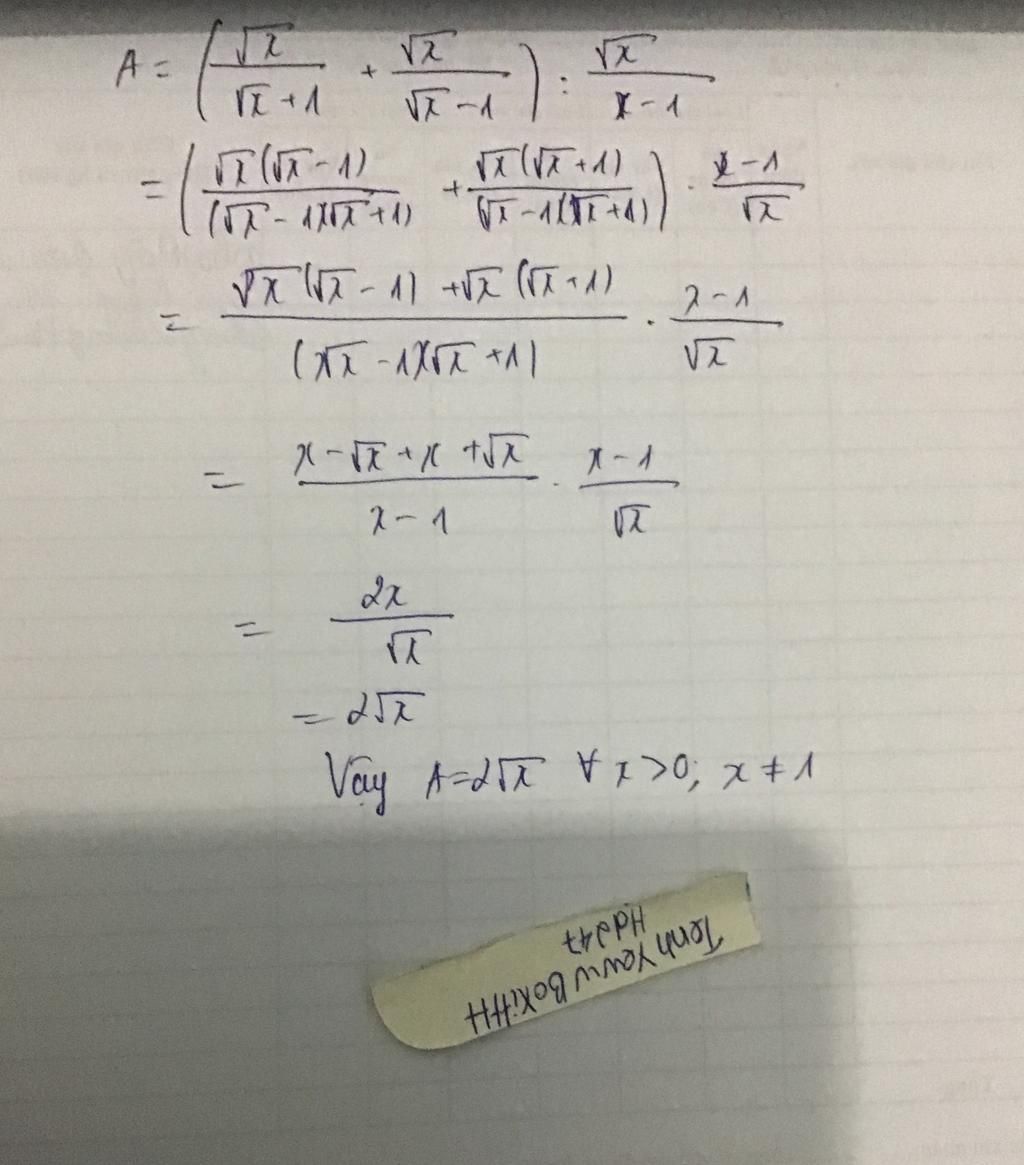 A = (√x/(√x + 1) + √x/(√x − 1)) : √x/(x − 1)
= (√x(√x − 1)/((√x − 1)(√x + 1)) + √x(√x + 1)/((√x − 1)(√x + 1))) · (x − 1)/√x
= (√x(√x − 1) + √x(√x + 1))/((√x − 1)(√x + 1)) · (x − 1)/√x
= (x − √x + x + √x)/(x − 1) · (x − 1)/√x
= 2x/√x
= 2√x
Vậy A = 2√x ∀ x > 0; x ≠ 1
Hd247